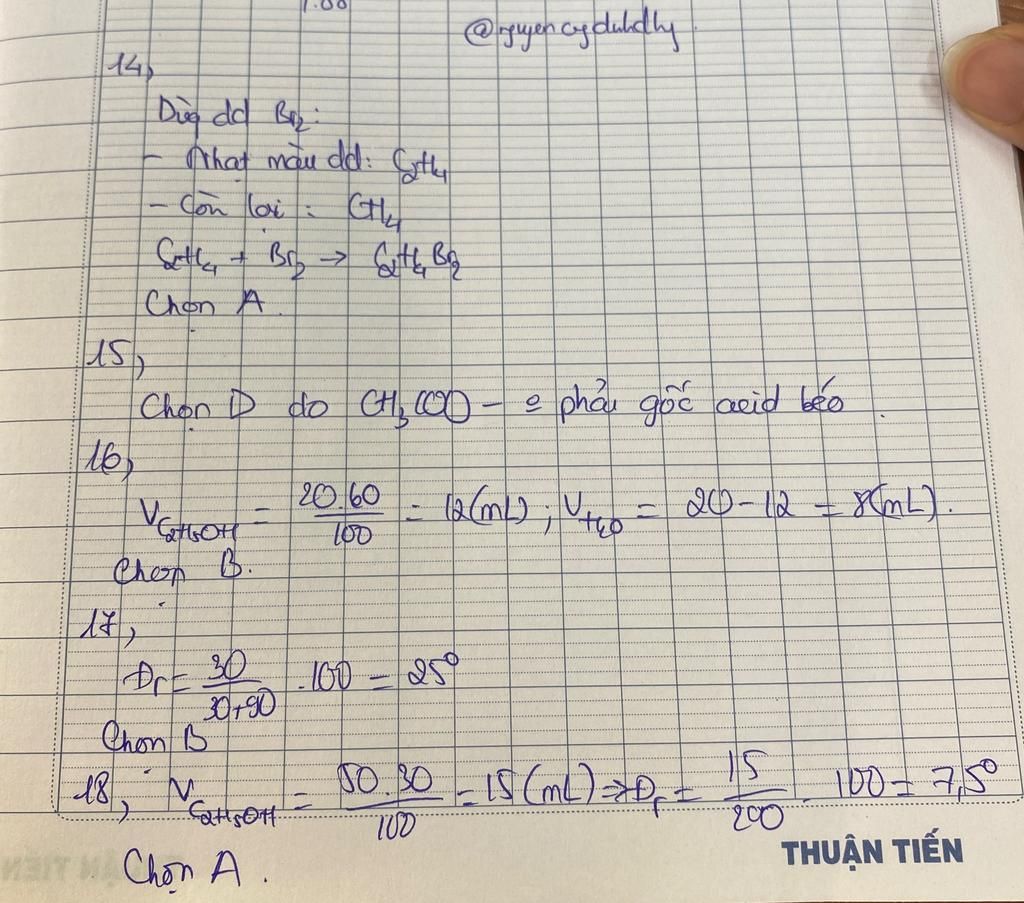 1.00
@nguyencgduhdhy
14,
Dùg dd Br2:
- Nhạt màu dd: C2H4
- Còn lại: CH4
C2H4 + Br2 → C2H4Br2
Chọn A.
15,
Chọn D do CH3COO- o phải gốc acid béo.
16,
V C2H5OH = 20.60/100 = 12(mL); V H2O = 20-12 = 8(mL).
Chọn B.
17,
Đr = 30/30+90 .100 = 25°
Chọn B
18, V C2H5OH = 50.30/100 = 15(mL) => Đr = 15/200 . 100 = 7,5°
THUẬN TIẾN
Chọn A.